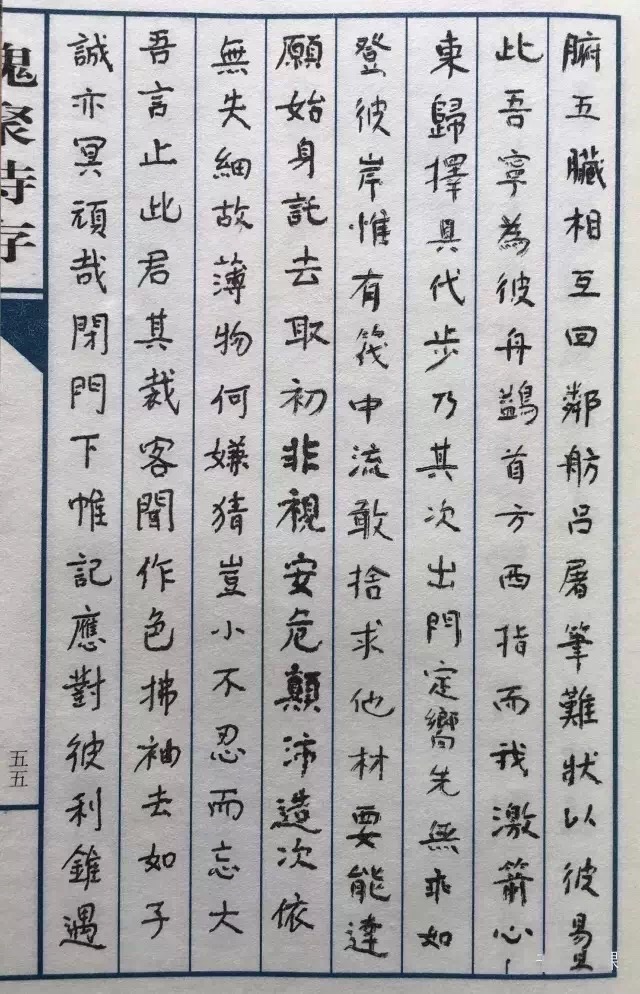 腑五臟相互回鄰舫呂屠筆難狀以彼易
此吾寧為彼舟鷁首方西指而我激箭心
東歸擇具代步乃其次出門定嚮先無乖如
登彼岸惟有筏中流敢捨求他材要能達
願始身託去取初非視安危顛沛造次依
無失細故薄物何嫌猜豈小不忍而忘大
吾言止此君其裁客聞作色拂袖去如子
誠亦冥頑哉閉門下帷記應對彼利錐遇
槐聚詩存
五五